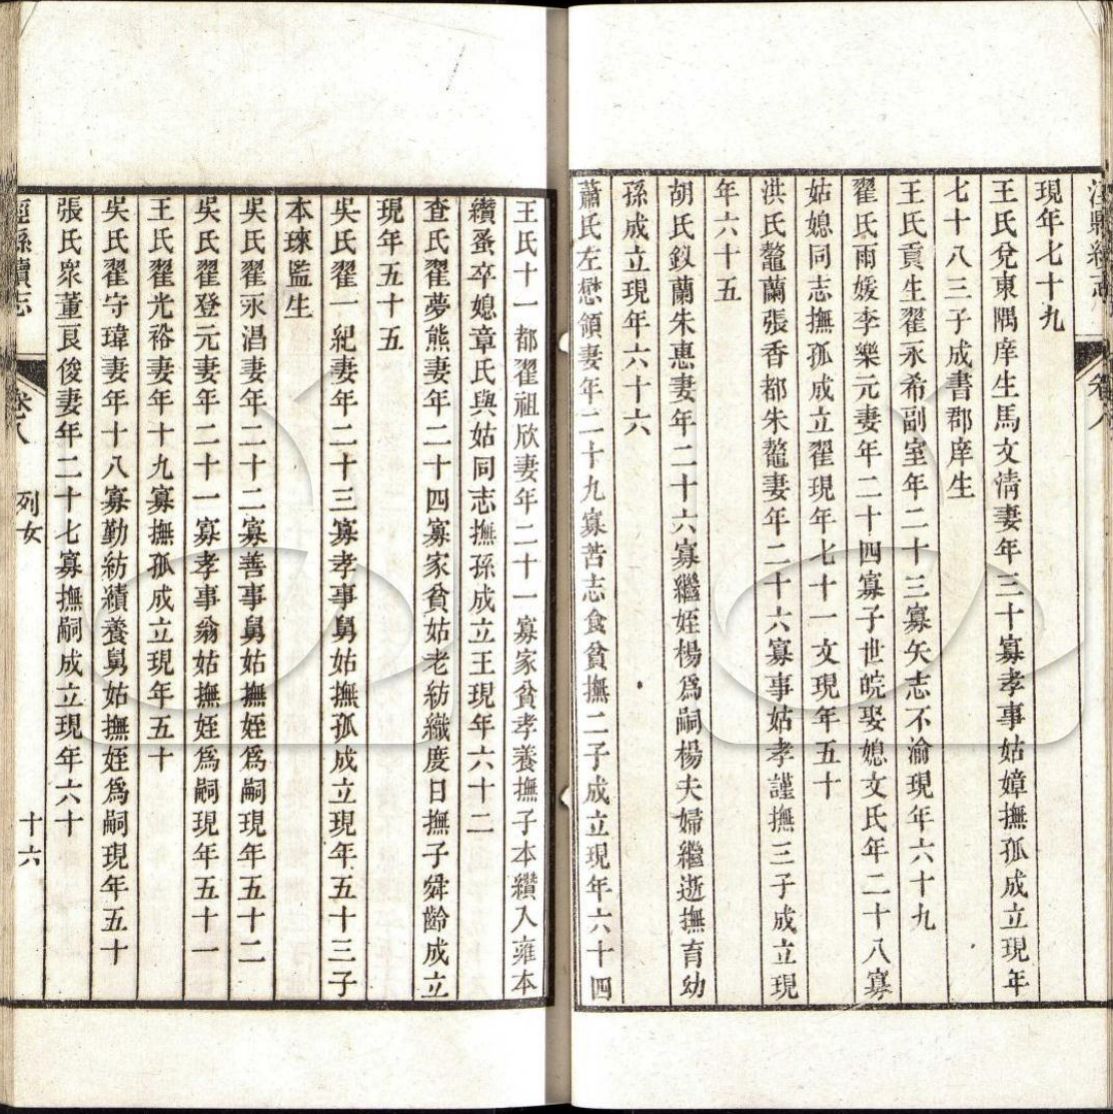 涇縣續志 卷八
現年七十九
王氏兌東隅庠生馬文淸妻年三十寡孝事姑嫜撫孤成立現年
七十八三子成書郡庠生
王氏貢生翟永希副室年二十三寡矢志不渝現年六十九
翟氏雨媛李樂元妻年二十四寡子世皖娶媳文氏年二十八寡
姑媳同志撫孤成立翟現年七十一文現年五十
洪氏鼇蘭張香都朱鼇妻年二十六寡事姑孝謹撫三子成立現
年六十五
胡氏釵蘭朱惠妻年二十六寡繼姪楊爲嗣楊夫婦繼逝撫育幼
孫成立現年六十六
蕭氏左懋領妻年二十九寡苦志食貧撫二子成立現年六十四
王氏十一都翟祖欣妻年二十一寡家貧孝養撫子本纘入雍本
纘蚤卒媳章氏與姑同志撫孫成立王現年六十二
查氏翟夢熊妻年二十四寡家貧姑老紡織度日撫子舜齡成立
現年五十五
吳氏翟一紀妻年二十三寡孝事舅姑撫孤成立現年五十三子
本瑓監生
吳氏翟永淐妻年二十二寡善事舅姑撫姪爲嗣現年五十二
吳氏翟登元妻年二十一寡孝事翁姑撫姪爲嗣現年五十一
王氏翟光裕妻年十九寡撫孤成立現年五十
吳氏翟守瑋妻年十八寡勤紡績養舅姑撫姪爲嗣現年五十
張氏衆董良俊妻年二十七寡撫嗣成立現年六十
涇縣續志 卷八 列女 十六